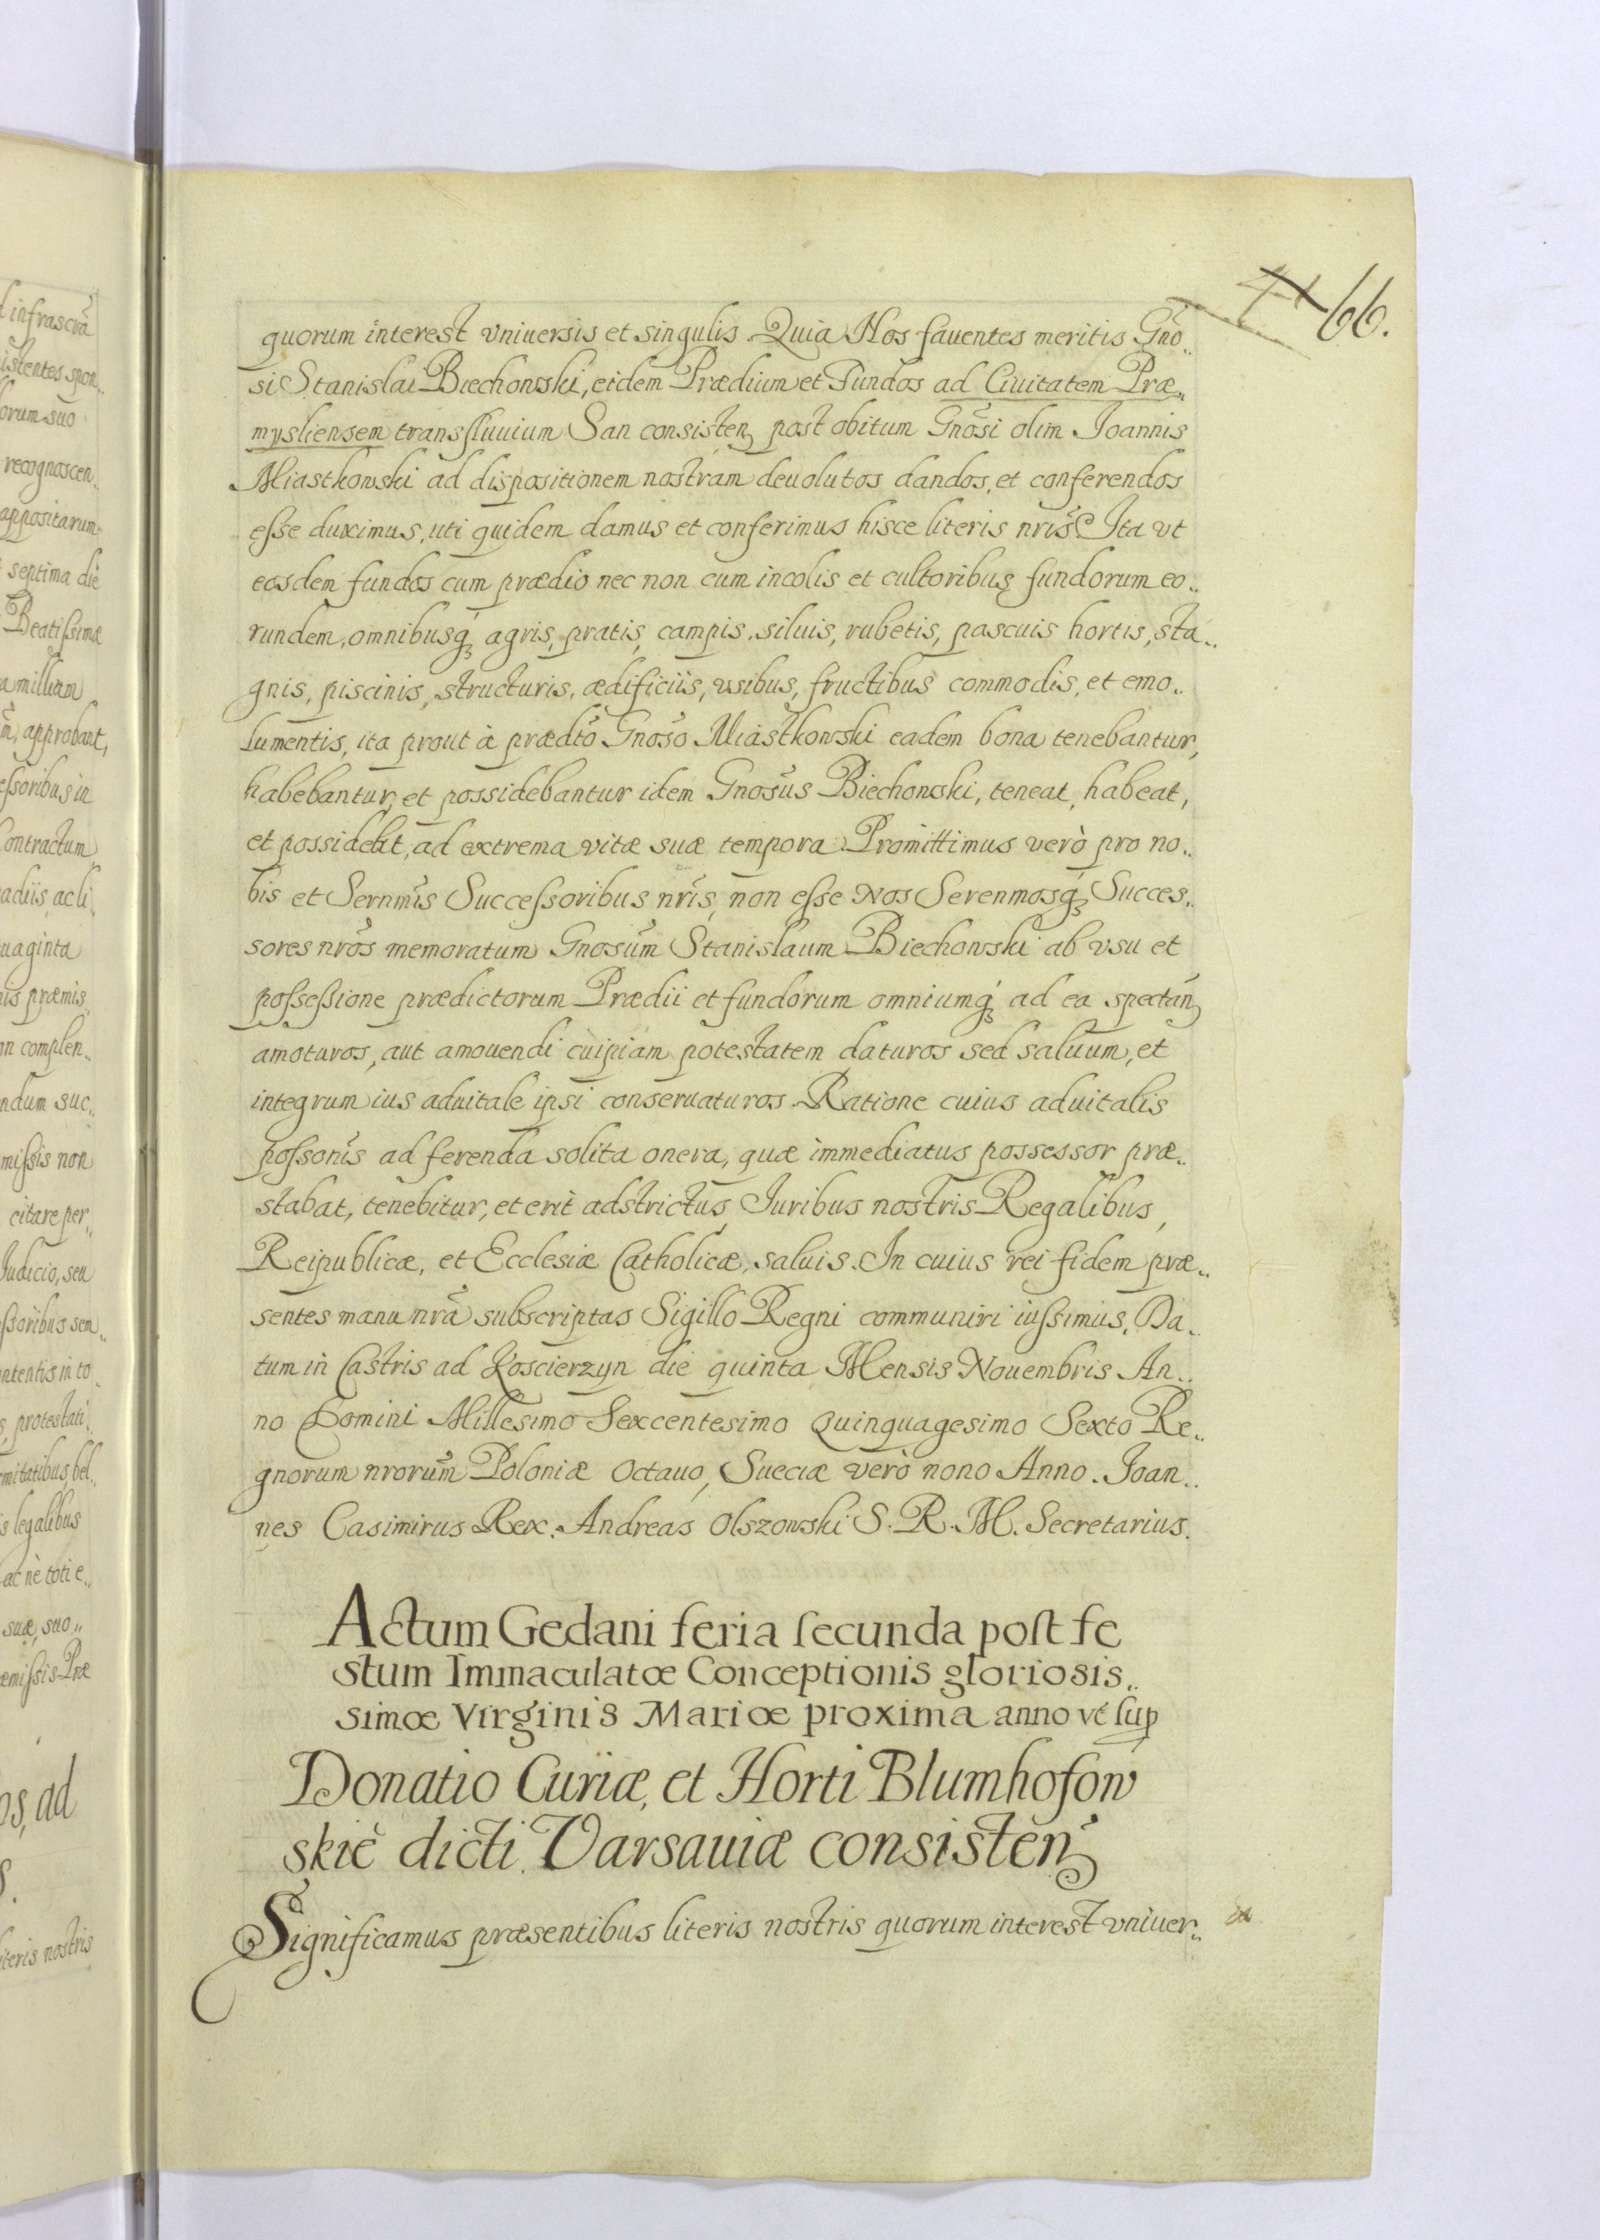 66.
quorum interest vniuersis et singulis. Quia Nos fauentes meritis Gnõ„
si Stanislai Biechowski, eidem Prædium et Fundos ad Ciuitatem Præ„
mysliensem transfluuium San consisteñ post obitum Gnõsi olim Joannis
Miastkowski ad dispositionem nostram deuolutos dandos, et conferendos
esse duximus, uti quidem damus et conferimus hisce literis nrĩs. Ita vt
eosdem fundos cum prædio nec non cum incolis et cultoribus fundorum eo„
rundem, omnibusq́ʒ agris, pratis, campis, siluis, rubetis, pascuis hortis, sta„
gnis, piscinis, structuris, ædificiis, vsibus, fructibus commodis, et emo„
lumentis, ita prout à prædt̃o Gnõso Miastkowski eadem bona tenebantur,
habebantur, et possidebantur idem Gnosũs Biechowski, teneat, habeat,
et possidebit, ad extrema vitæ suæ tempora. Promittimus verò pro no„
bis et Sernmĩs Successoribus nrĩs, non esse Nos Serenmosq́ʒ Succes„
sores nrõs memoratum Gnosũm Stanislaum Biechowski ab vsu et
possessione prædictorum Prædii et fundorum omniumq́ʒ ad ea spectañ
amoturos, aut amouendi cuipiam potestatem daturos sed saluum, et
integrum ius aduitale ipsi conseruaturos. Ratione cuius aduitalis
possonĩs ad ferenda solita onera, quæ immediatus possessor præ„
stabat, tenebitur, et erit adstrictus, Juribus nostris Regalibus,
Reipublicæ, et Ecclesiæ Catholicæ, saluis. In cuius rei fidem præ„
sentes manu nrã subscriptas Sigillo Regni communiri iussimus. Da„
tum in Castris ad Koscierzyn die quinta Mensis Nouembris An„
no Domini Millesimo Sexcentesimo Quinquagesimo Sexto Re„
gnorum nrorũm Poloniæ Octauo, Sueciæ verò nono Anno. Joan„
nes Casimirus Rex. Andreas Olszowski S. R. M. Secretarius.
Actum Gedani feria secunda post fe
stum Immaculatœ Conceptionis gloriosis„
simœ Virginis Mariœ proxima anno vt sup
Donatio Curiæ, et Horti Blumhofow
skie dicti Varsauiæ consisteñ
Significamus præsentibus literis nostris quorum interest vniuer„